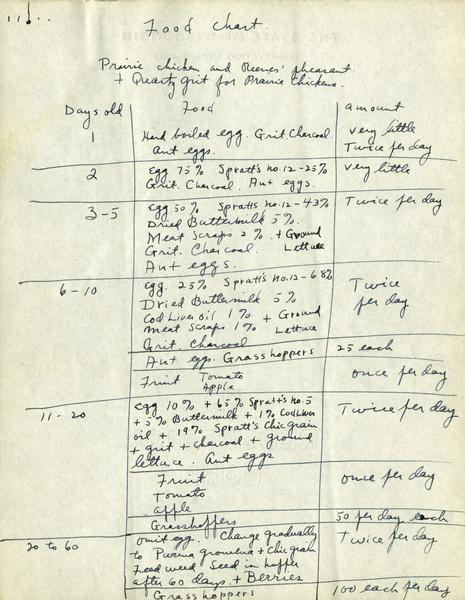 Food Chart.
Prairie chicken and Reeves' pheasant
+ Quartz grit for Prairie Chickens.
Days old Food amount
1 Hard boiled egg. Grit. Charcoal very little
Ant eggs. Twice per day
2 Egg 75% Spratt's no. 12 - 25% very little
Grit. Charcoal. Ant eggs.
3-5 Egg 50% Spratts no. 12 - 43% Twice per day
Dried Buttermilk 5%.
Meat Scraps 2% + Ground
Grit. Charcoal. Lettuce
Ant eggs.
6-10 egg. 25% Spratt's no. 12 - 68% Twice
Dried Buttermilk 5% per day
Cod Liver oil 1% + Ground
meat Scraps 1% Lettuce
Grit Charcoal
Ant eggs. Grasshoppers 25 each
Fruit Tomato once per day
Apple
11-20 egg 10% + 65% Spratt's no. 5 Twice per day
+ 5% Buttermilk + 1% Cod Liver
oil + 19% Spratt's Chicgrain
+ grit + charcoal + ground
lettuce. Ant eggs
Fruit once per day
Tomato
apple
Grasshoppers 50 per day each
20 to 60 omit egg. Change gradually Twice per day
to Purina growena + chic grain
Feed weed Seed in hopper
after 60 days. + Berries
Grasshoppers 100 each per day